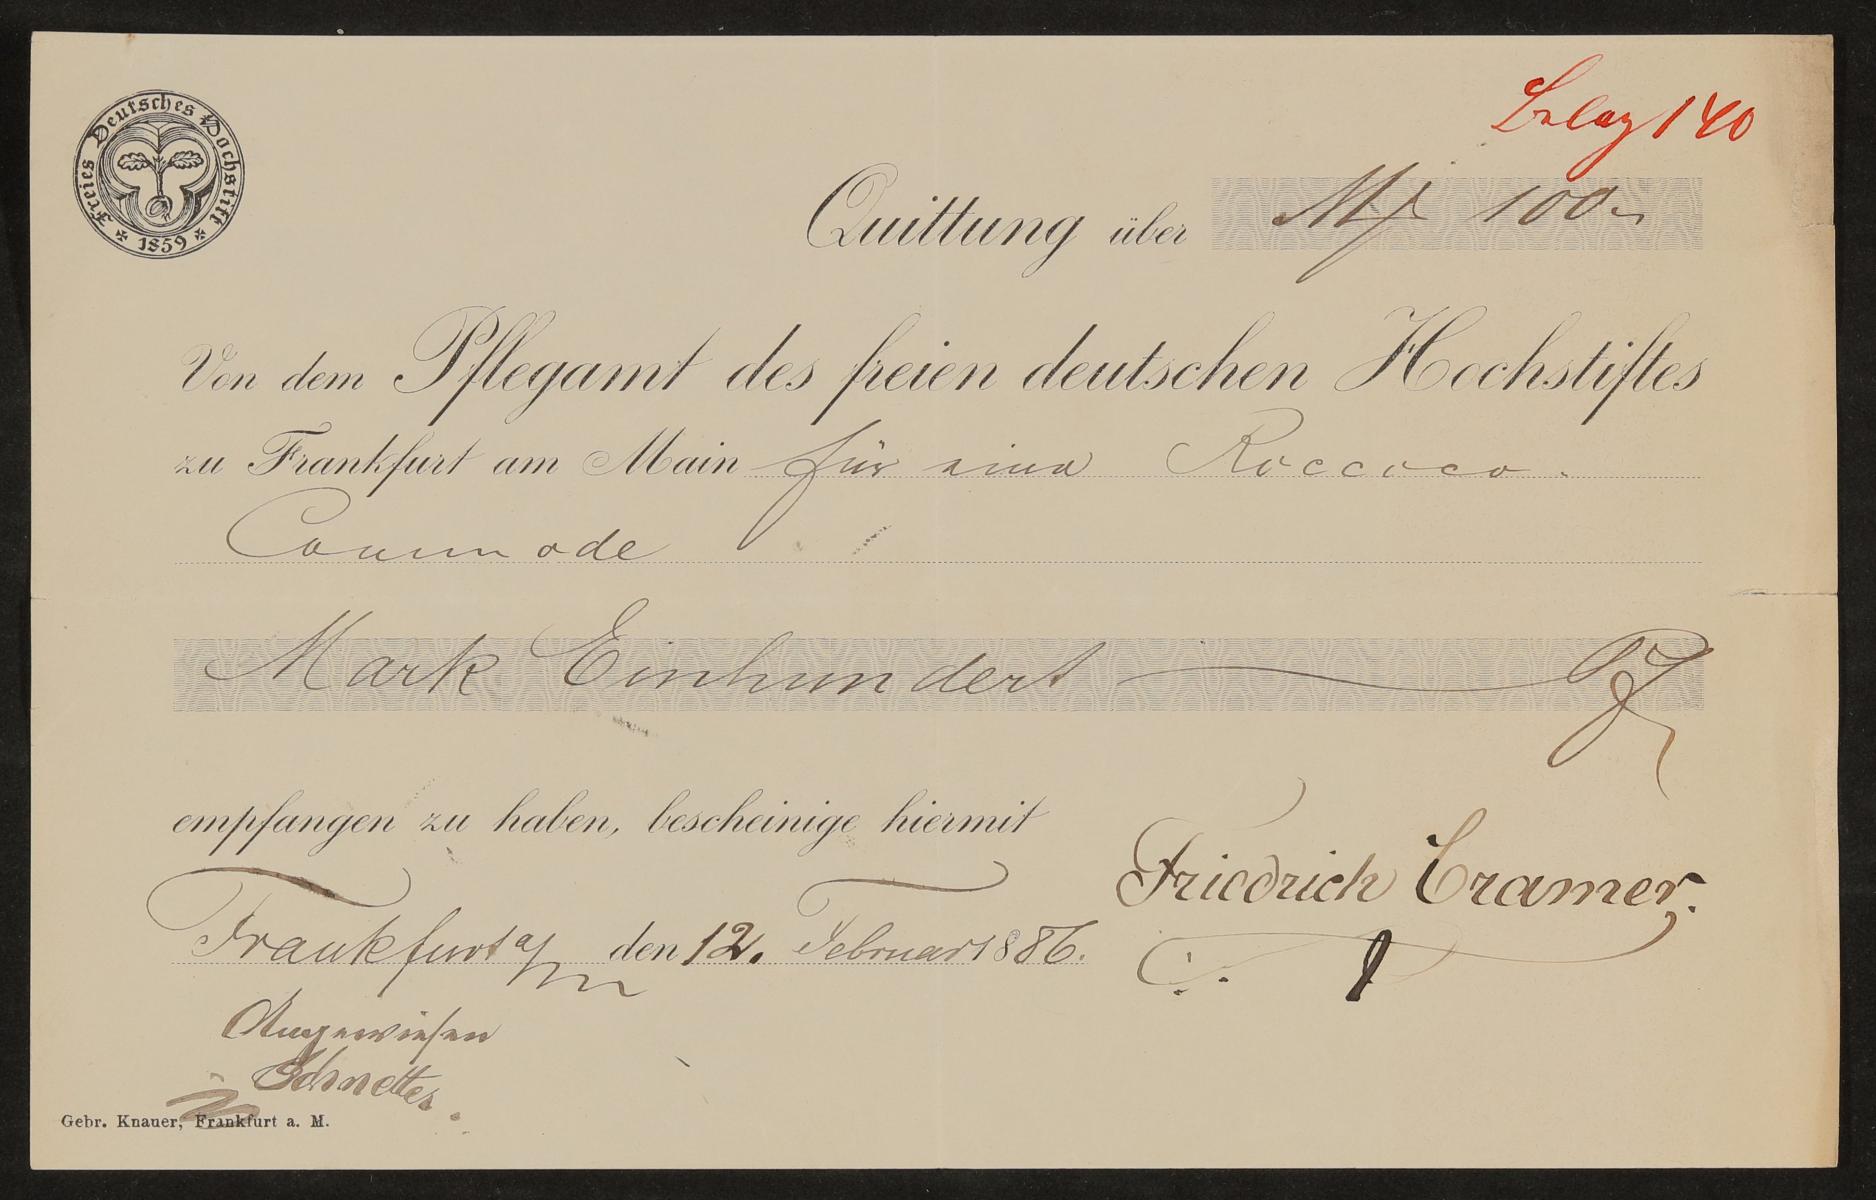 Freies Deutsches Hochstift
1859
Belag 140
Quittung über M 100
Von dem Pflegamt des freien deutschen Hochstiftes
zu Frankfurt am Main für eine Roccoco-
Commode
Mark Einhundert
empfangen zu haben, bescheinige hiermit
Friedrich Cramer.
Frankfurt a/m den 12. Februar 1886.
Angewiesen
Gebr. Knauer, Frankfurt a. M.